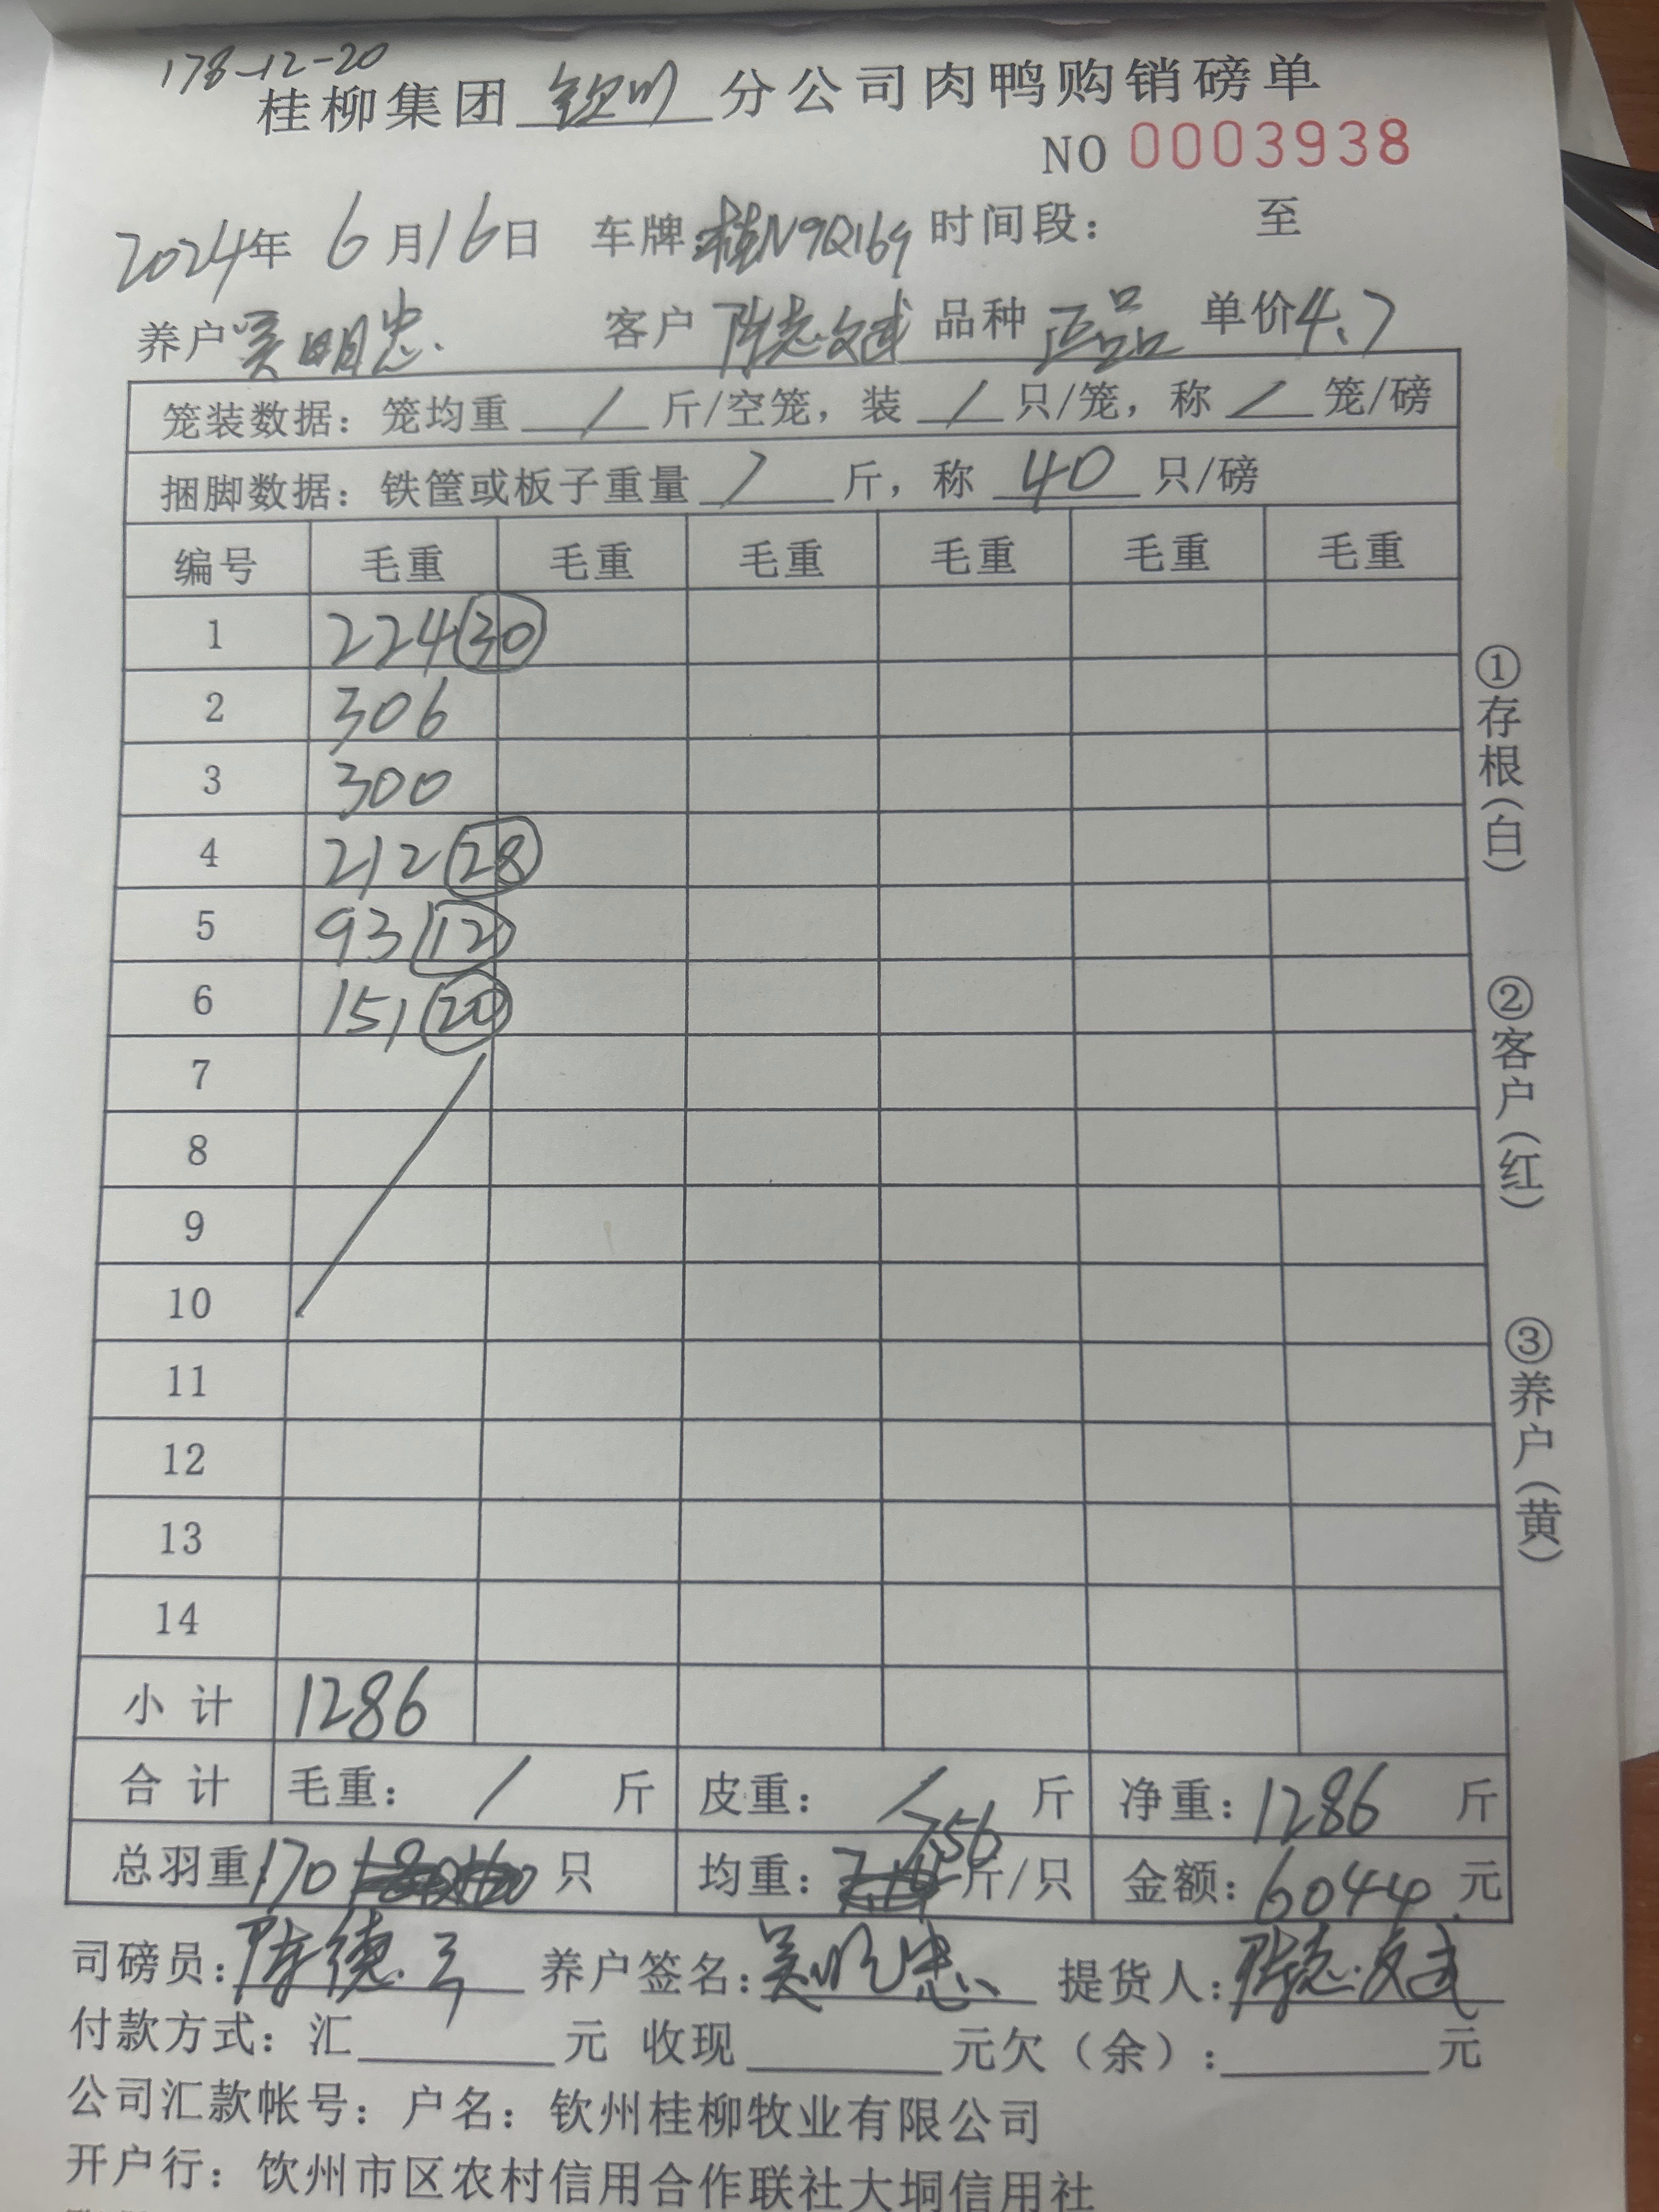 178-12-20
桂柳集团 钦州 分公司肉鸭购销磅单
NO 0003938
2024年 6月16日 车牌:桂N9Q169 时间段: 至
养户 吴明忠. 客户 陈志斌 品种 正品 单价4.7
笼装数据: 笼均重 / 斤/空笼, 装 / 只/笼, 称 / 笼/磅
捆脚数据: 铁筐或板子重量 / 斤, 称 40 只/磅
编号 毛重 毛重 毛重 毛重 毛重 毛重
1 224 30
2 306
3 300
4 212 28
5 93 12
6 151 20
7
8
9
10
11
12
13
14
小 计 1286
合 计 毛重: / 斤 皮重: / 斤 净重: 1286 斤
总羽重:170 只 均重: 7.56 斤/只 金额: 6044 元
司磅员: 陈德 养户签名: 吴明忠 提货人: 陈志斌
付款方式: 汇 元 收现 元欠(余): 元
公司汇款帐号: 户名: 钦州桂柳牧业有限公司
开户行: 饮州市区农村信用合作联社大垌信用社
①存根(白)
②客户(红)
③养户(黄)